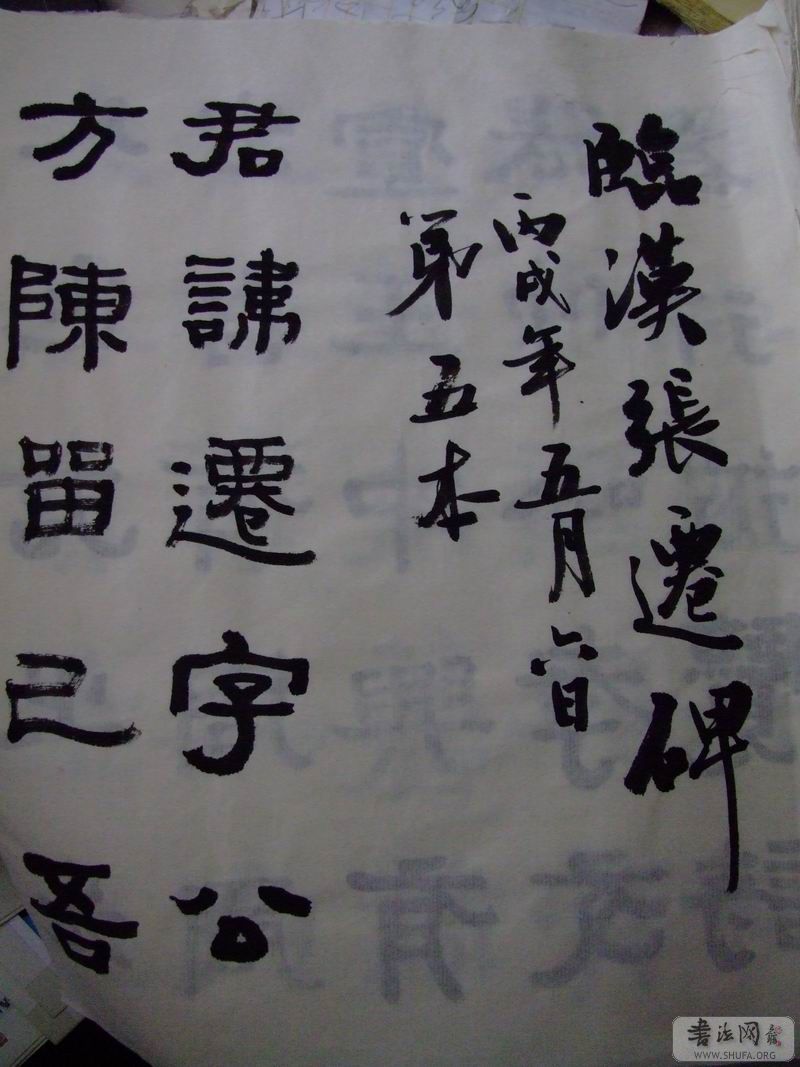 臨漢張遷碑
丙戌年五月六日
第五本
君諱遷字公
方陳留己吾
書法网
WWW.SHUFA.ORG